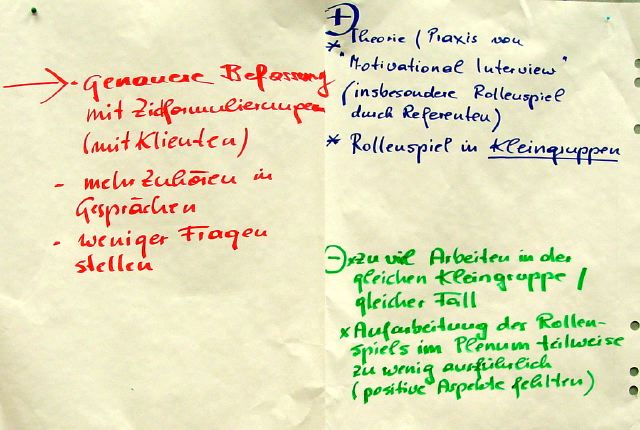 → - Genauere Befassung
mit Zielformulierungen
(mit Klienten)
- mehr Zuhören in
Gesprächen
- weniger Fragen
stellen
+
* Theorie / Praxis von
"Motivational Interview"
(insbesondere Rollenspiel
durch Referenten)
* Rollenspiel in Kleingruppen
- x zu viel Arbeiten in der
gleichen Kleingruppe /
gleicher Fall
x Aufarbeitung des Rollen-
spiels im Plenum teilweise
zu wenig ausführlich
(positive Aspekte fehlten)